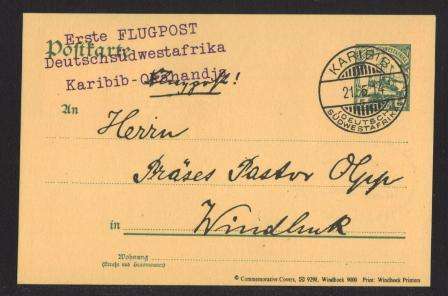 Erste FLUGPOST
Deutschsüdwestafrika
Karibib-Okahandja
Postkarte
Flugpost!
KARIBIB
21.5.14
DEUTSCH-
SÜDWESTAFRIKA
An
Herrn
Präses Pastor Olpp
in Windhuk
Wohnung
(Straße und Hausnummer)
© Commemorative Covers, ✉ 9298, Windhoek 9000 Print: Windhoek Printers